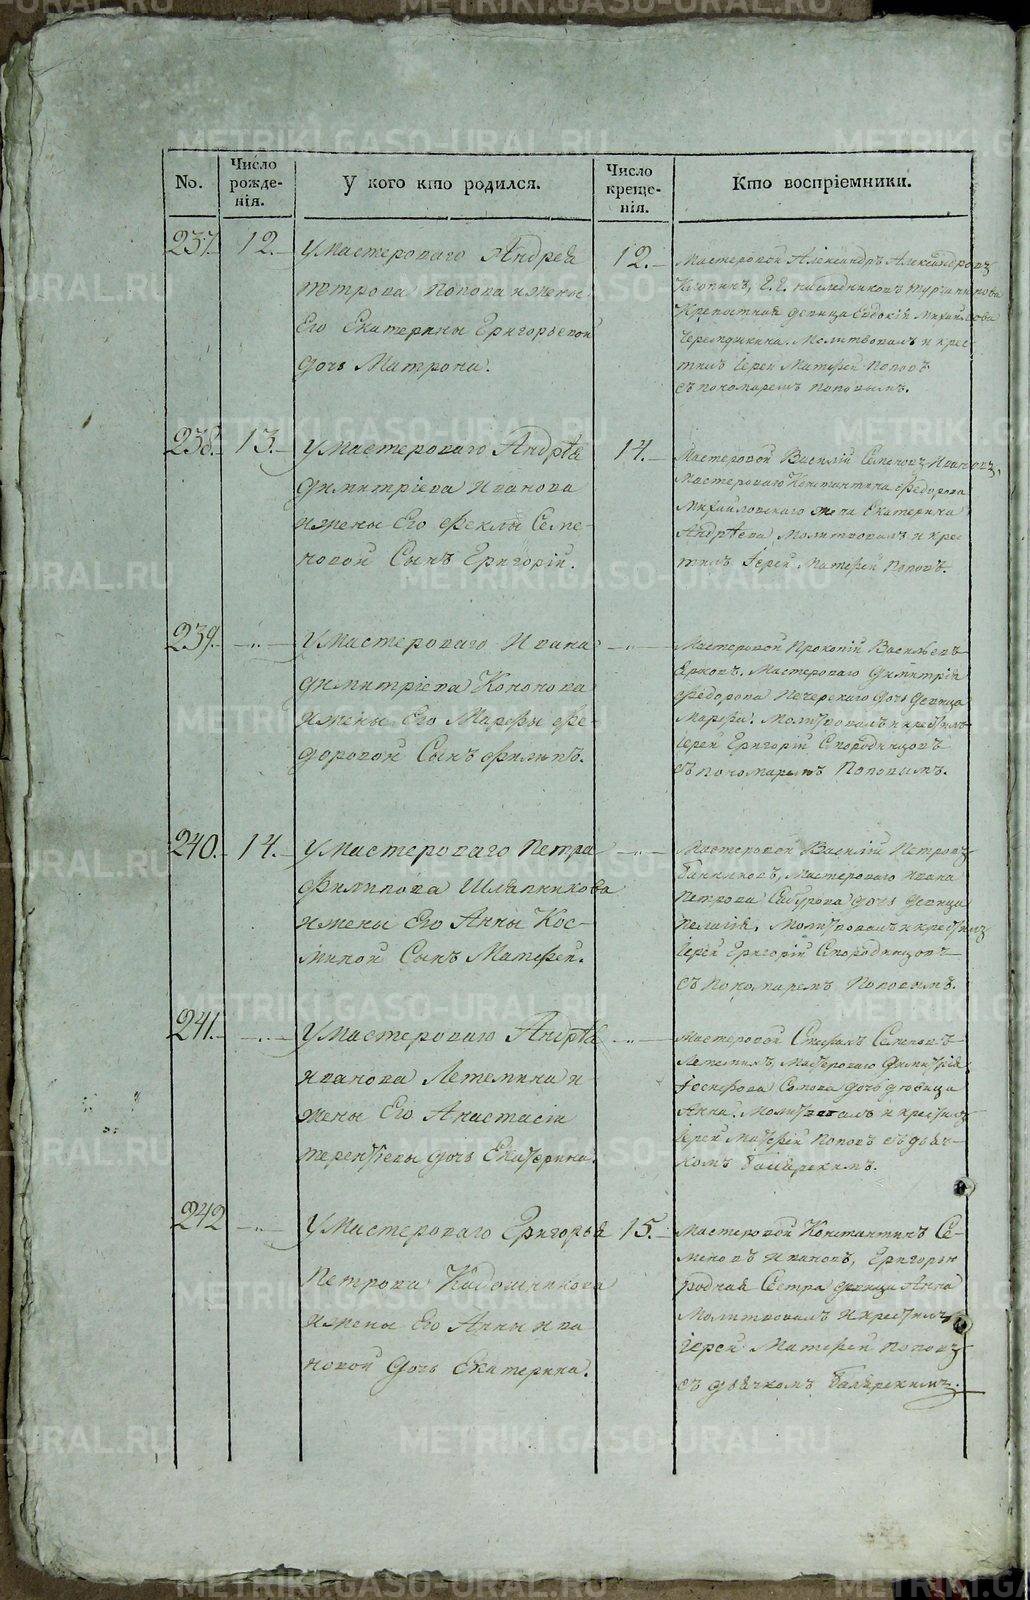 No.
Число рожде-
нія.
У кого кто родился.
Число креще-
нія.
Кто воспріемники.
237. 12.
У Мастероваго Андрея
Петрова Попова и жены
Его Екатерины Григорьевой
дочь Матрона.
12.
Мастеровой Александръ Александровъ
Е. Г. наследниковъ Турчанинова
Крепостная девица Евдокія Михайлова
Молитвовалъ и крес-
тилъ Іерей Матфей Поповъ
съ пономаремъ Поповымъ.
238. 13.
У Мастероваго Андрѣя
Димитріева Иванова
и жены Его Феклы Семе-
новой Сынъ Григорій.
14.
Мастеровой Василій Семеновъ Ивановъ,
Мастероваго Константина Федорова
Михайловскаго жена Екатерина
Андрѣева Молитвовалъ и крес
тилъ Іерей Матфей Поповъ.
239. -"-
У Мастероваго Ивана
Димитріева Кононова
и жены Его Марфы Фе-
доровой Сынъ Филипъ.
-"-
Мастеровой Прокопій Васильевъ
Мастероваго Димитрія
Федорова Печерскаго дочь девица
Марфа. Молитвовалъ и крестилъ
Іерей Григорій Скородинцовъ
съ пономаремъ Поповымъ.
240. 14.
У Мастероваго Петра
Филипова Шляпникова
и жены Его Анны Кос-
миной Сынъ Матфей.
-"-
Мастеровой Василій Петровъ
Мастероваго Ивана
Петрова дочь девица
Молитвовалъ и крестилъ
Іерей Григорій Скородинцовъ
съ Пономаремъ Поповымъ.
241. -"-
У Мастероваго Андрѣя
Иванова Летемина и
жены Его Анастасіи
Терентіевы дочь Екатерина.
-"-
Мастеровой Стефанъ Семеновъ
Летеминъ, Мастероваго Димитрія
Іосифова Сопова дочь девица
Анна. Молитвовалъ и крестилъ
Іерей Матфей Поповъ съ дьяч-
комъ
242 -"-
У Мастероваго Григорья
Петрова Кадошникова
и жены Его Анны Ива
новой дочь Екатерина.
15.
Мастеровой Константинъ Се-
меновъ Ивановъ, Григорью
родная Сестра девица Анна
Молитвовалъ и крестилъ
Іерей Матфей Поповъ
съ дьячкомъ
METRIKI.GASO-URAL.RU